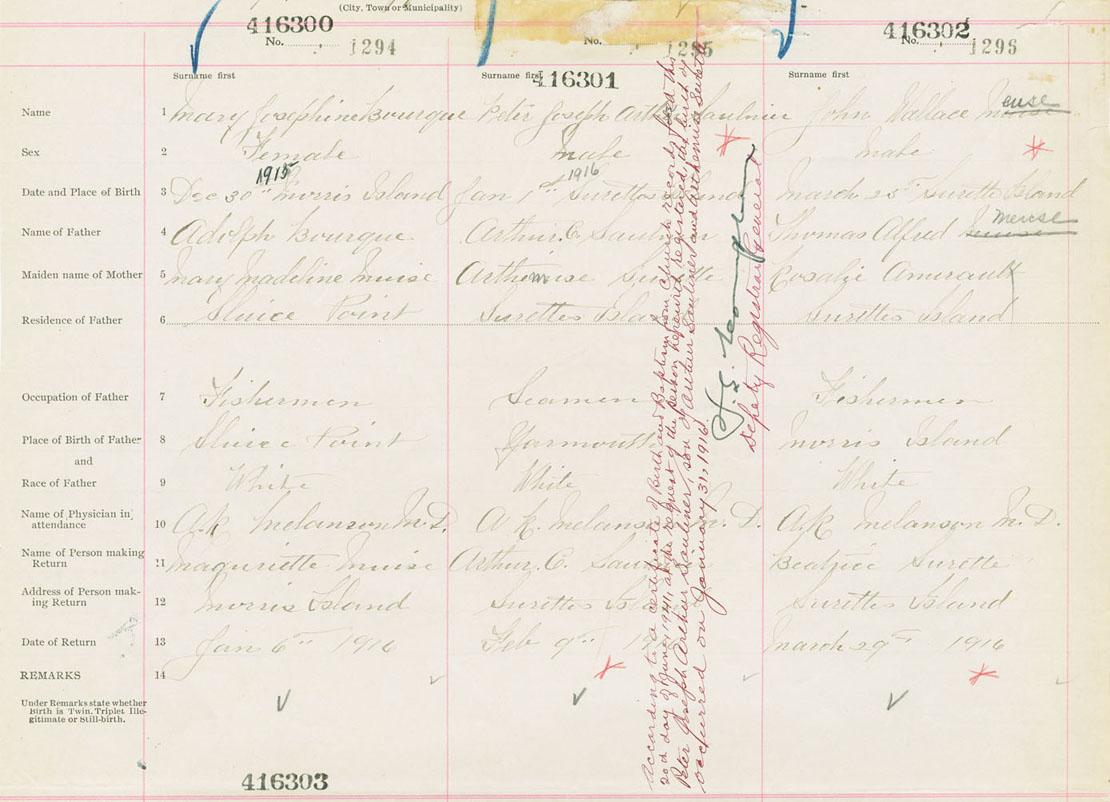 (City, Town or Municipality)
416300
416302
No. 1294
No. 1295
No. 1296
Surname first
Surname first
416301
Surname first
Name 1 Mary Josephine Bourque
Peter Joseph Arthur Saulnier
John Wallace Muise euse
Sex 2 Female
Male
Male
1915
1916
Date and Place of Birth 3 Dec 30th Morris Island
Jan 1st Surettes Island
March 25th Surette Island
Name of Father 4 Adolph Bourque
Arthur. C. Saulnier
Thomas Alfred Muise meuse
Maiden name of Mother 5 Mary Madeline Muise
Arthemise Surette
Rosalie Amirault
Residence of Father 6 Sluice Point
Surettes Island
Surettes Island
Occupation of Father 7 Fishermen
Seamen
Fishermen
Place of Birth of Father 8 Sluice Point
Yarmouth
Morris Island
and
Race of Father 9 White
White
White
Name of Physician in
attendance 10 A.R. Melanson M.D.
A. R. Melanson M.D.
A.R. Melanson M.D.
Name of Person making
Return 11 Maguriette Muise
Arthur. C. Saulnier
Beatrice Surette
Address of Person mak-
ing Return 12 Morris Island
Surettes Island
Surettes Island
Date of Return 13 Jan 6th 1916
Feb 9th
March 29th 1916
REMARKS 14
Under Remarks state whether
Birth is Twin, Triplet Ille-
gitimate or Still-birth.
416303
According to a certificate of Birth and Baptism from Church records filed this
2nd day of June, 1941, at the request of the person herewith registered the birth of
Peter Joseph Arthur Saulnier, son of Arthur Saulnier and Arthemise Surette
occurred on January 31, 1916
Deputy Registrar General